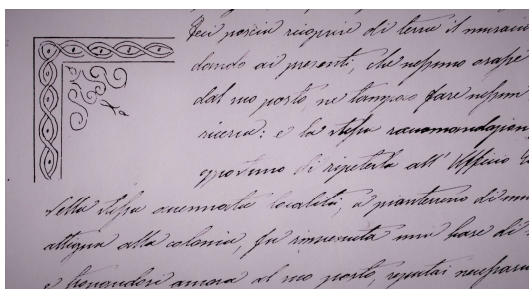 Feci poscia ricoprire di terra il musaico
dando ai presenti, che nessuno osasse
dal suo posto ne tampoco fare nessun
ricerca: e la stessa raccomandazion
opportuno di ripeterla all' Ufficio
Nella stessa accennata località, a pianterreno di
attigua alla colonia, fu rinvenuta una base di
e trovandosi ancora al suo posto, reputai necessari